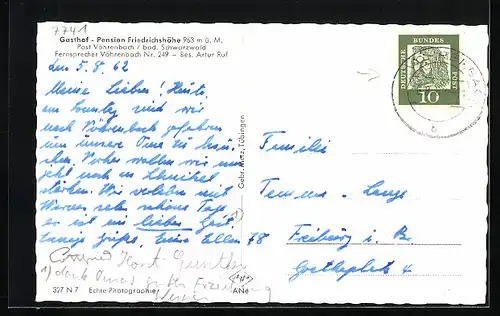 7741
Gasthof - Pension Friedrichshöhe 963 m ü. M.
Post Vöhrenbach / bad. Schwarzwald
Fernsprecher Vöhrenbach Nr. 249 – Bes. Artur Ruf
den 5.8.62
Meine Lieben! Heute,
am Sonntag sind wir
nach Vöhrenbach gefahren
um unsere Oma zu besu-
chen. Vorher wollen wir uns
jetzt noch am Schnitzel
stärken. Wir verleben mit
Werner sehr schöne Tage,
er ist ein lieber Gast.
Grüße, Eure Ellen
Horst Günther
1) dank Omas guter Erziehung
Werner
327 N 7 Echte Photographie
ANe
Gebr. Metz, Tübingen
DEUTSCHE BUNDESPOST
10
b
Familie
Lange
78 Freiburg i. B.
Goetheplatz 4